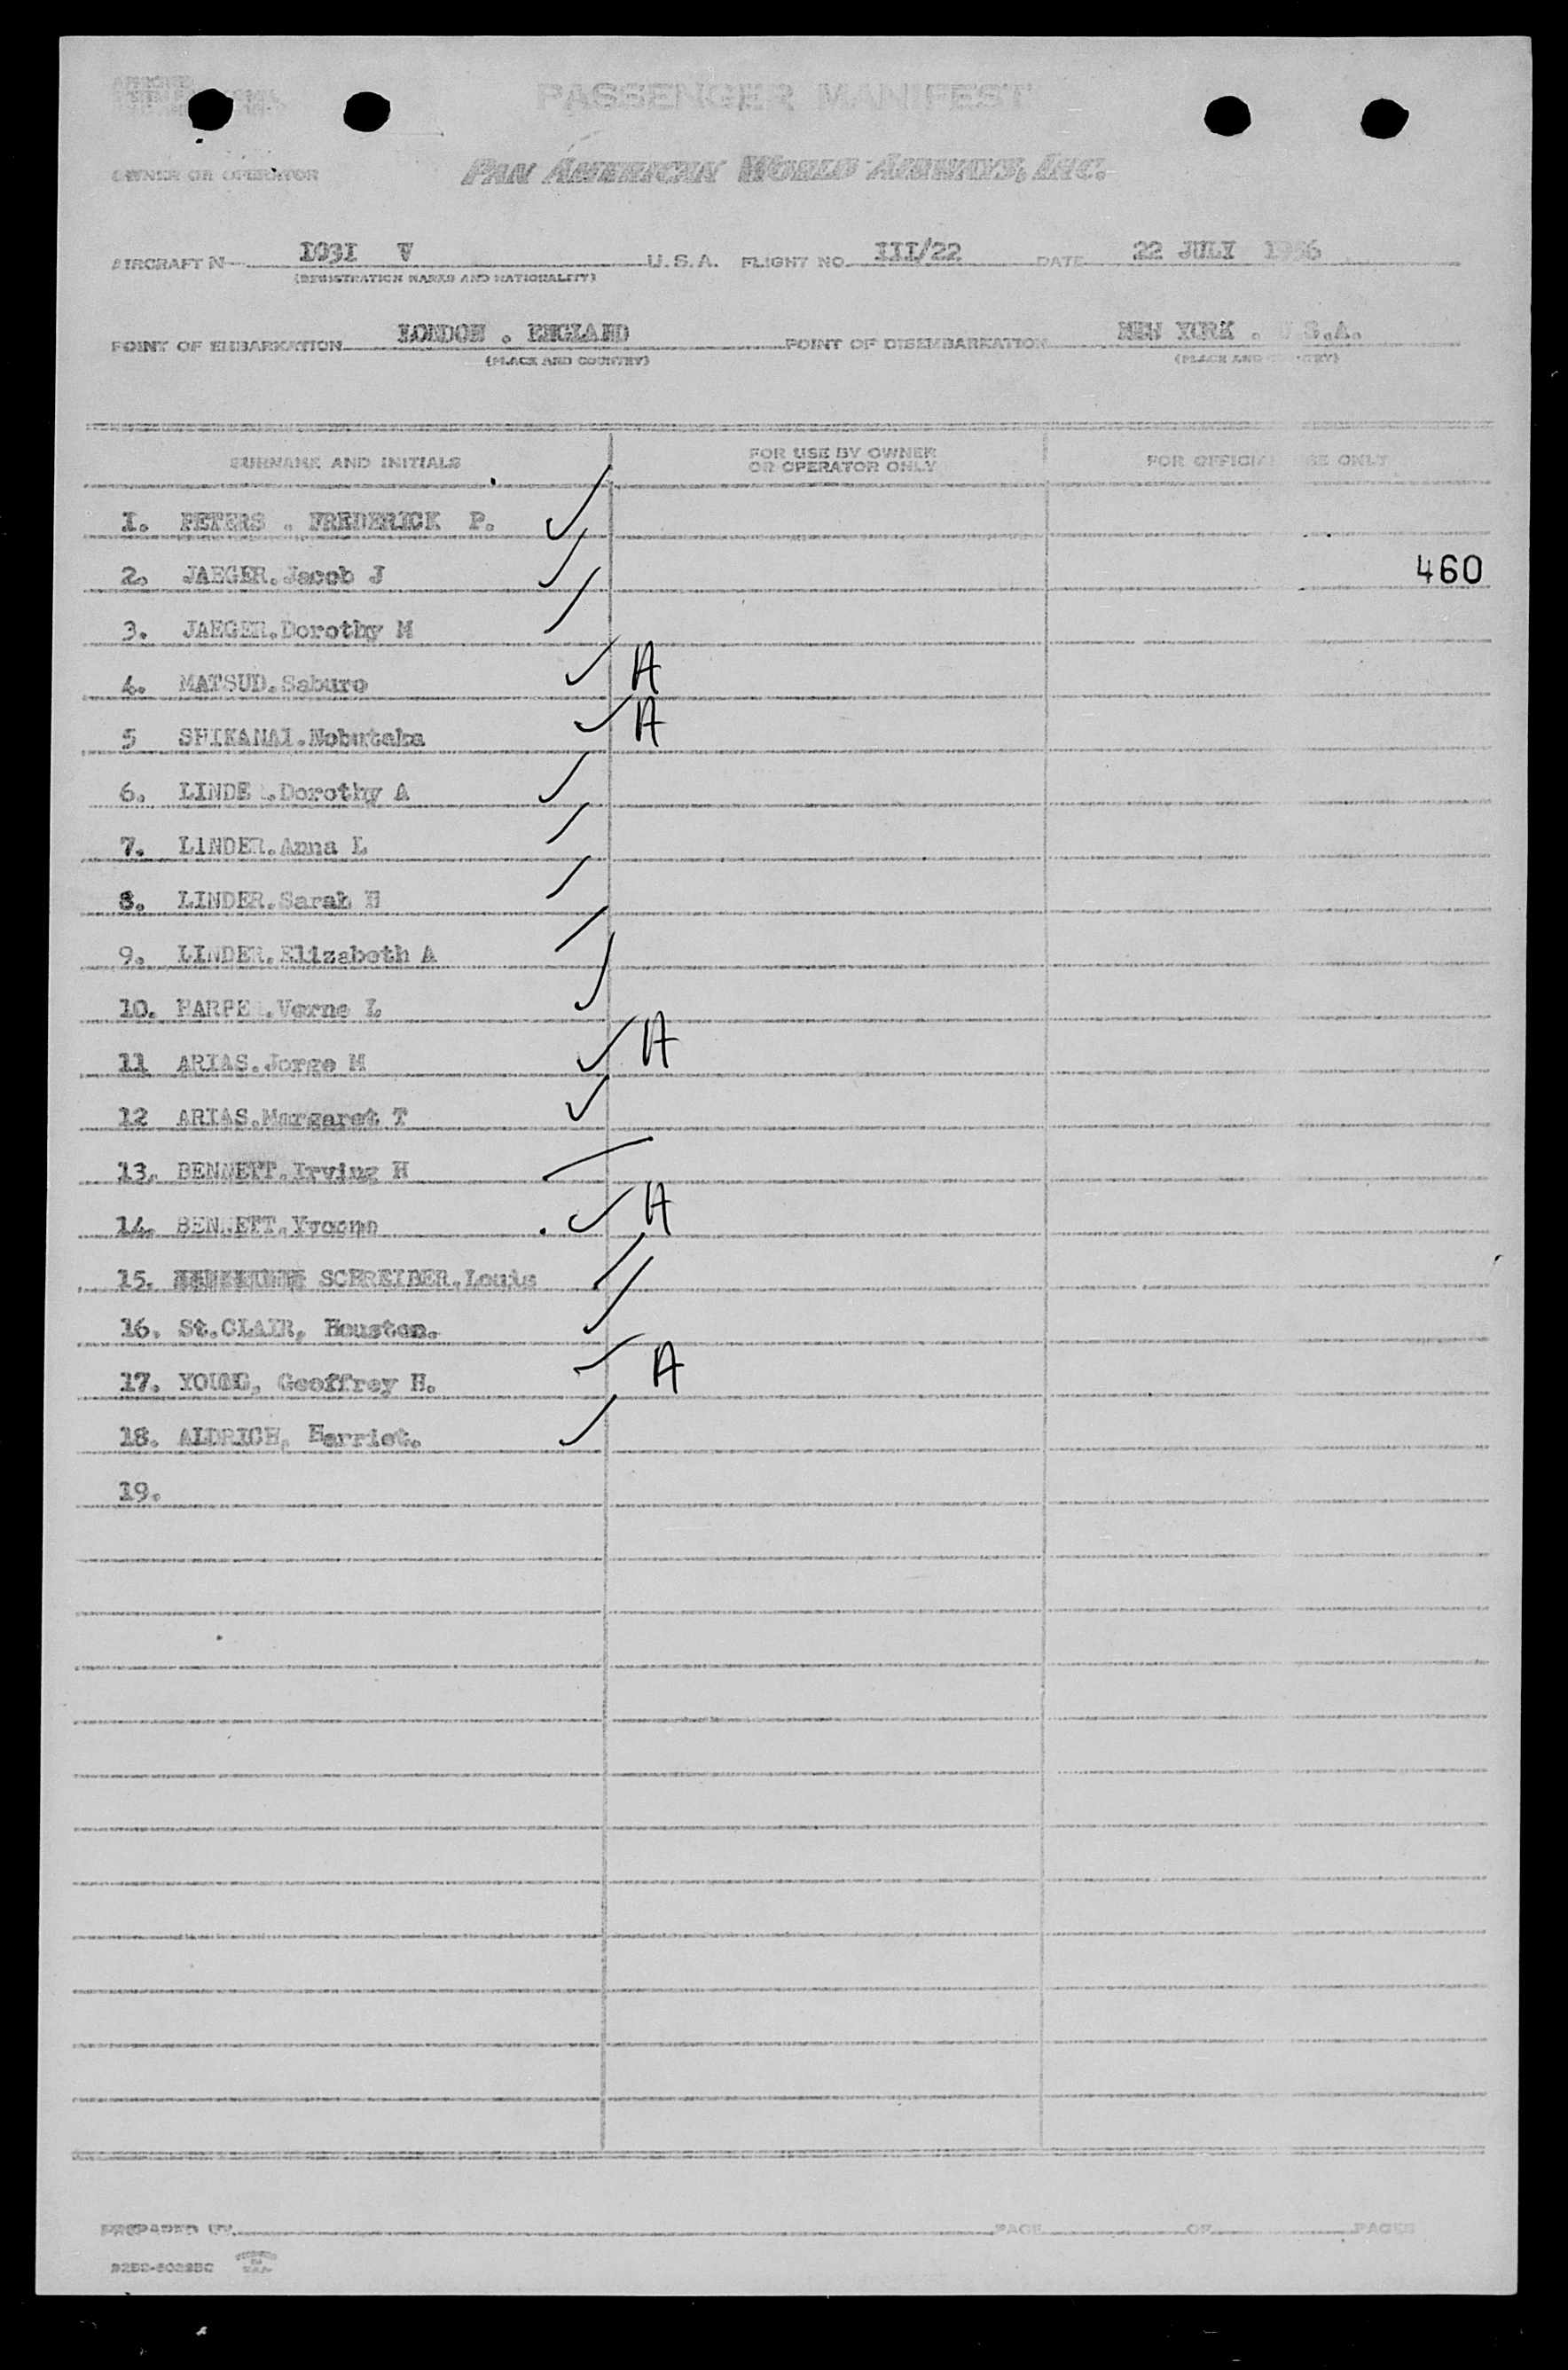 PASSENGER MANIFEST
OWNER OR OPERATOR PAN AMERICAN WORLD AIRWAYS, INC.
AIRCRAFT N 1031 V U.S.A. FLIGHT NO. III/22 DATE 22 JULY 1956
(REGISTRATION MARKS AND NATIONALITY)
POINT OF EMBARKATION LONDON . ENGLAND POINT OF DISEMBARKATION NEW YORK . U.S.A.
(PLACE AND COUNTRY) (PLACE AND COUNTRY)
SURNAME AND INITIALS FOR USE BY OWNER OR OPERATOR ONLY FOR OFFICIAL USE ONLY
1. PETERS . FREDERICK P.
2. JAEGER.Jacob J 460
3. JAEGER.Dorothy M
4. MATSUD.Saburo A
5 SHIKANAI.Nobutaka A
6. LINDE .Dorothy A
7. LINDER.Anna L
8. LINDER.Sarah H
9. LINDER.Elizabeth A
10. HARPE .Verne L
11 ARIAS.Jorge M A
12 ARIAS.Margaret T
13. BENNETT.Irving H
14. BENNETT.Yvonne A
15. SCHREIBER.Louis
16. St.CLAIR, Houston.
17. YOUNG, Geoffrey H. A
18. ALDRICH, Harriet.
19.
PREPARED BY PAGE OF PAGES